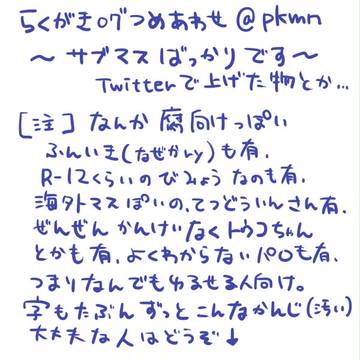 らくがきログつめあわせ@pkmn
～サブマスばっかりです～
Twitterで上げた物とか…
[注]なんか腐向けっぽい
ふんいき(なぜかry)も有.
R-12くらいのびみょうなのも有.
海外トマスぽいの、てつどういんさん有.
ぜんぜんかんけいなくトウコちゃん
とかも有.よくわからないパロも有.
つまりなんでもゆるせる人向け。
字もたぶんずっとこんなかんじ(汚い)
大丈夫な人はどうぞ↓